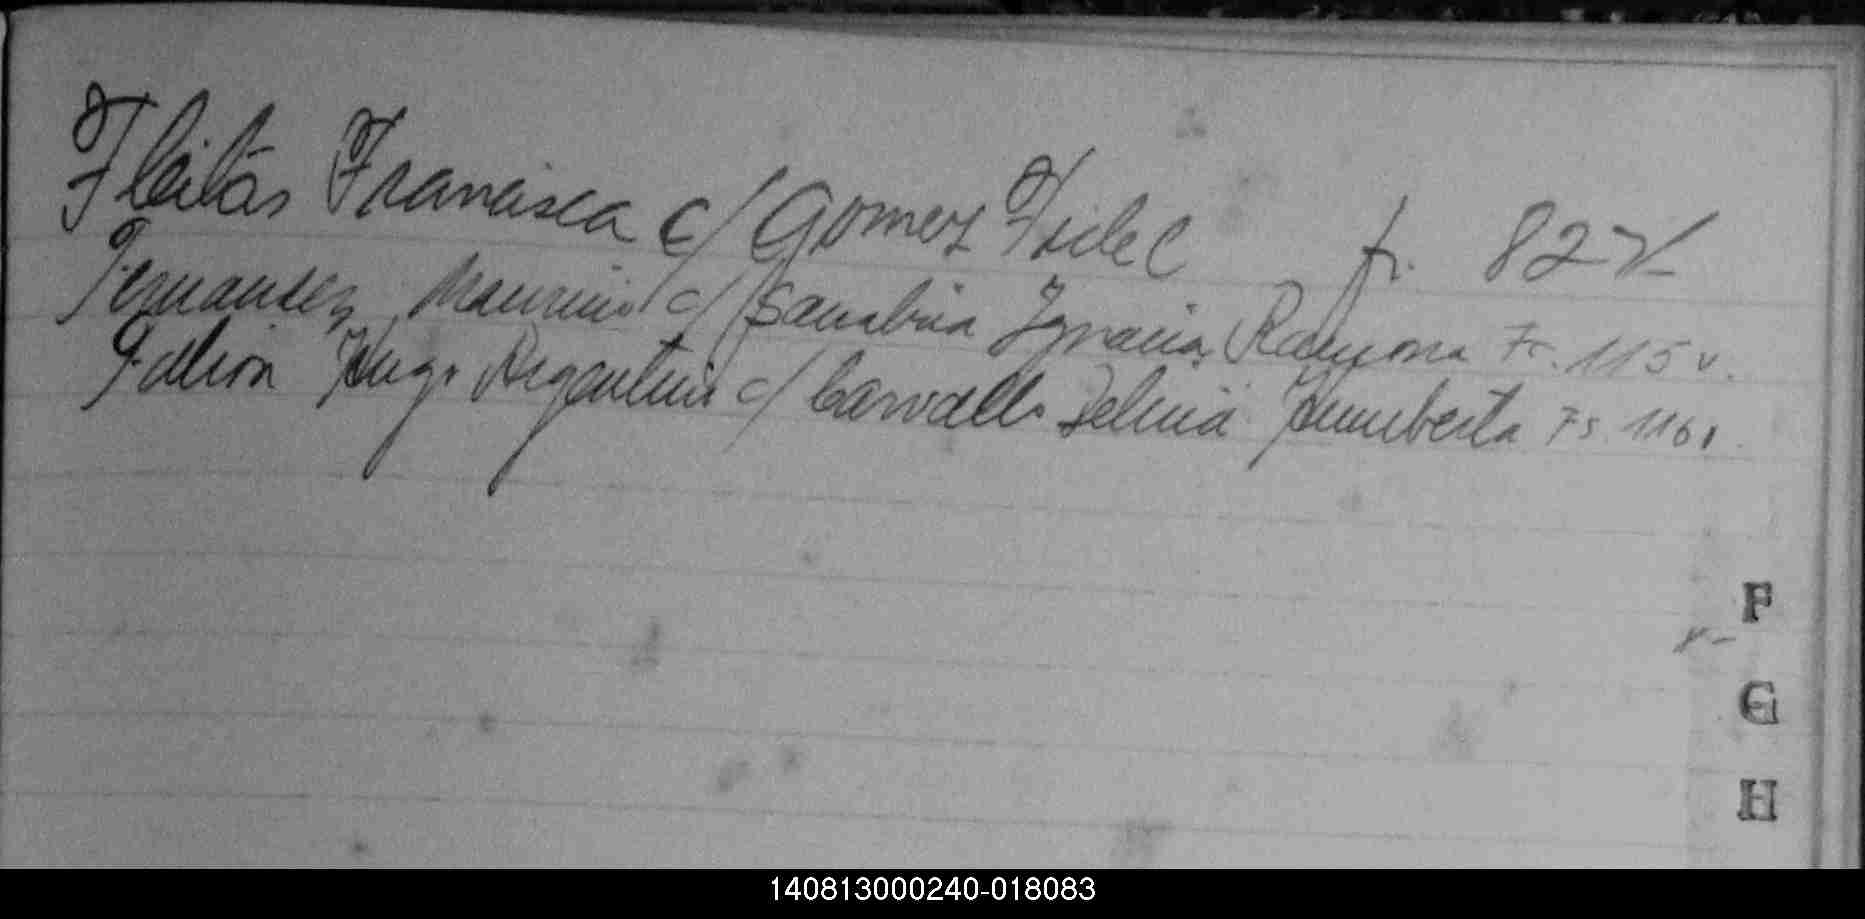 Fleitas Francisca c/ Gomez Fidel fs. 82v
Fernandez Mauricio c/ Sanabria Ignacia Ramona Fs. 115 v.
Falcon Hugo Argentino c/ Carvallo Delicia Humberta Fs. 116
F
G
H
140813000240-018083